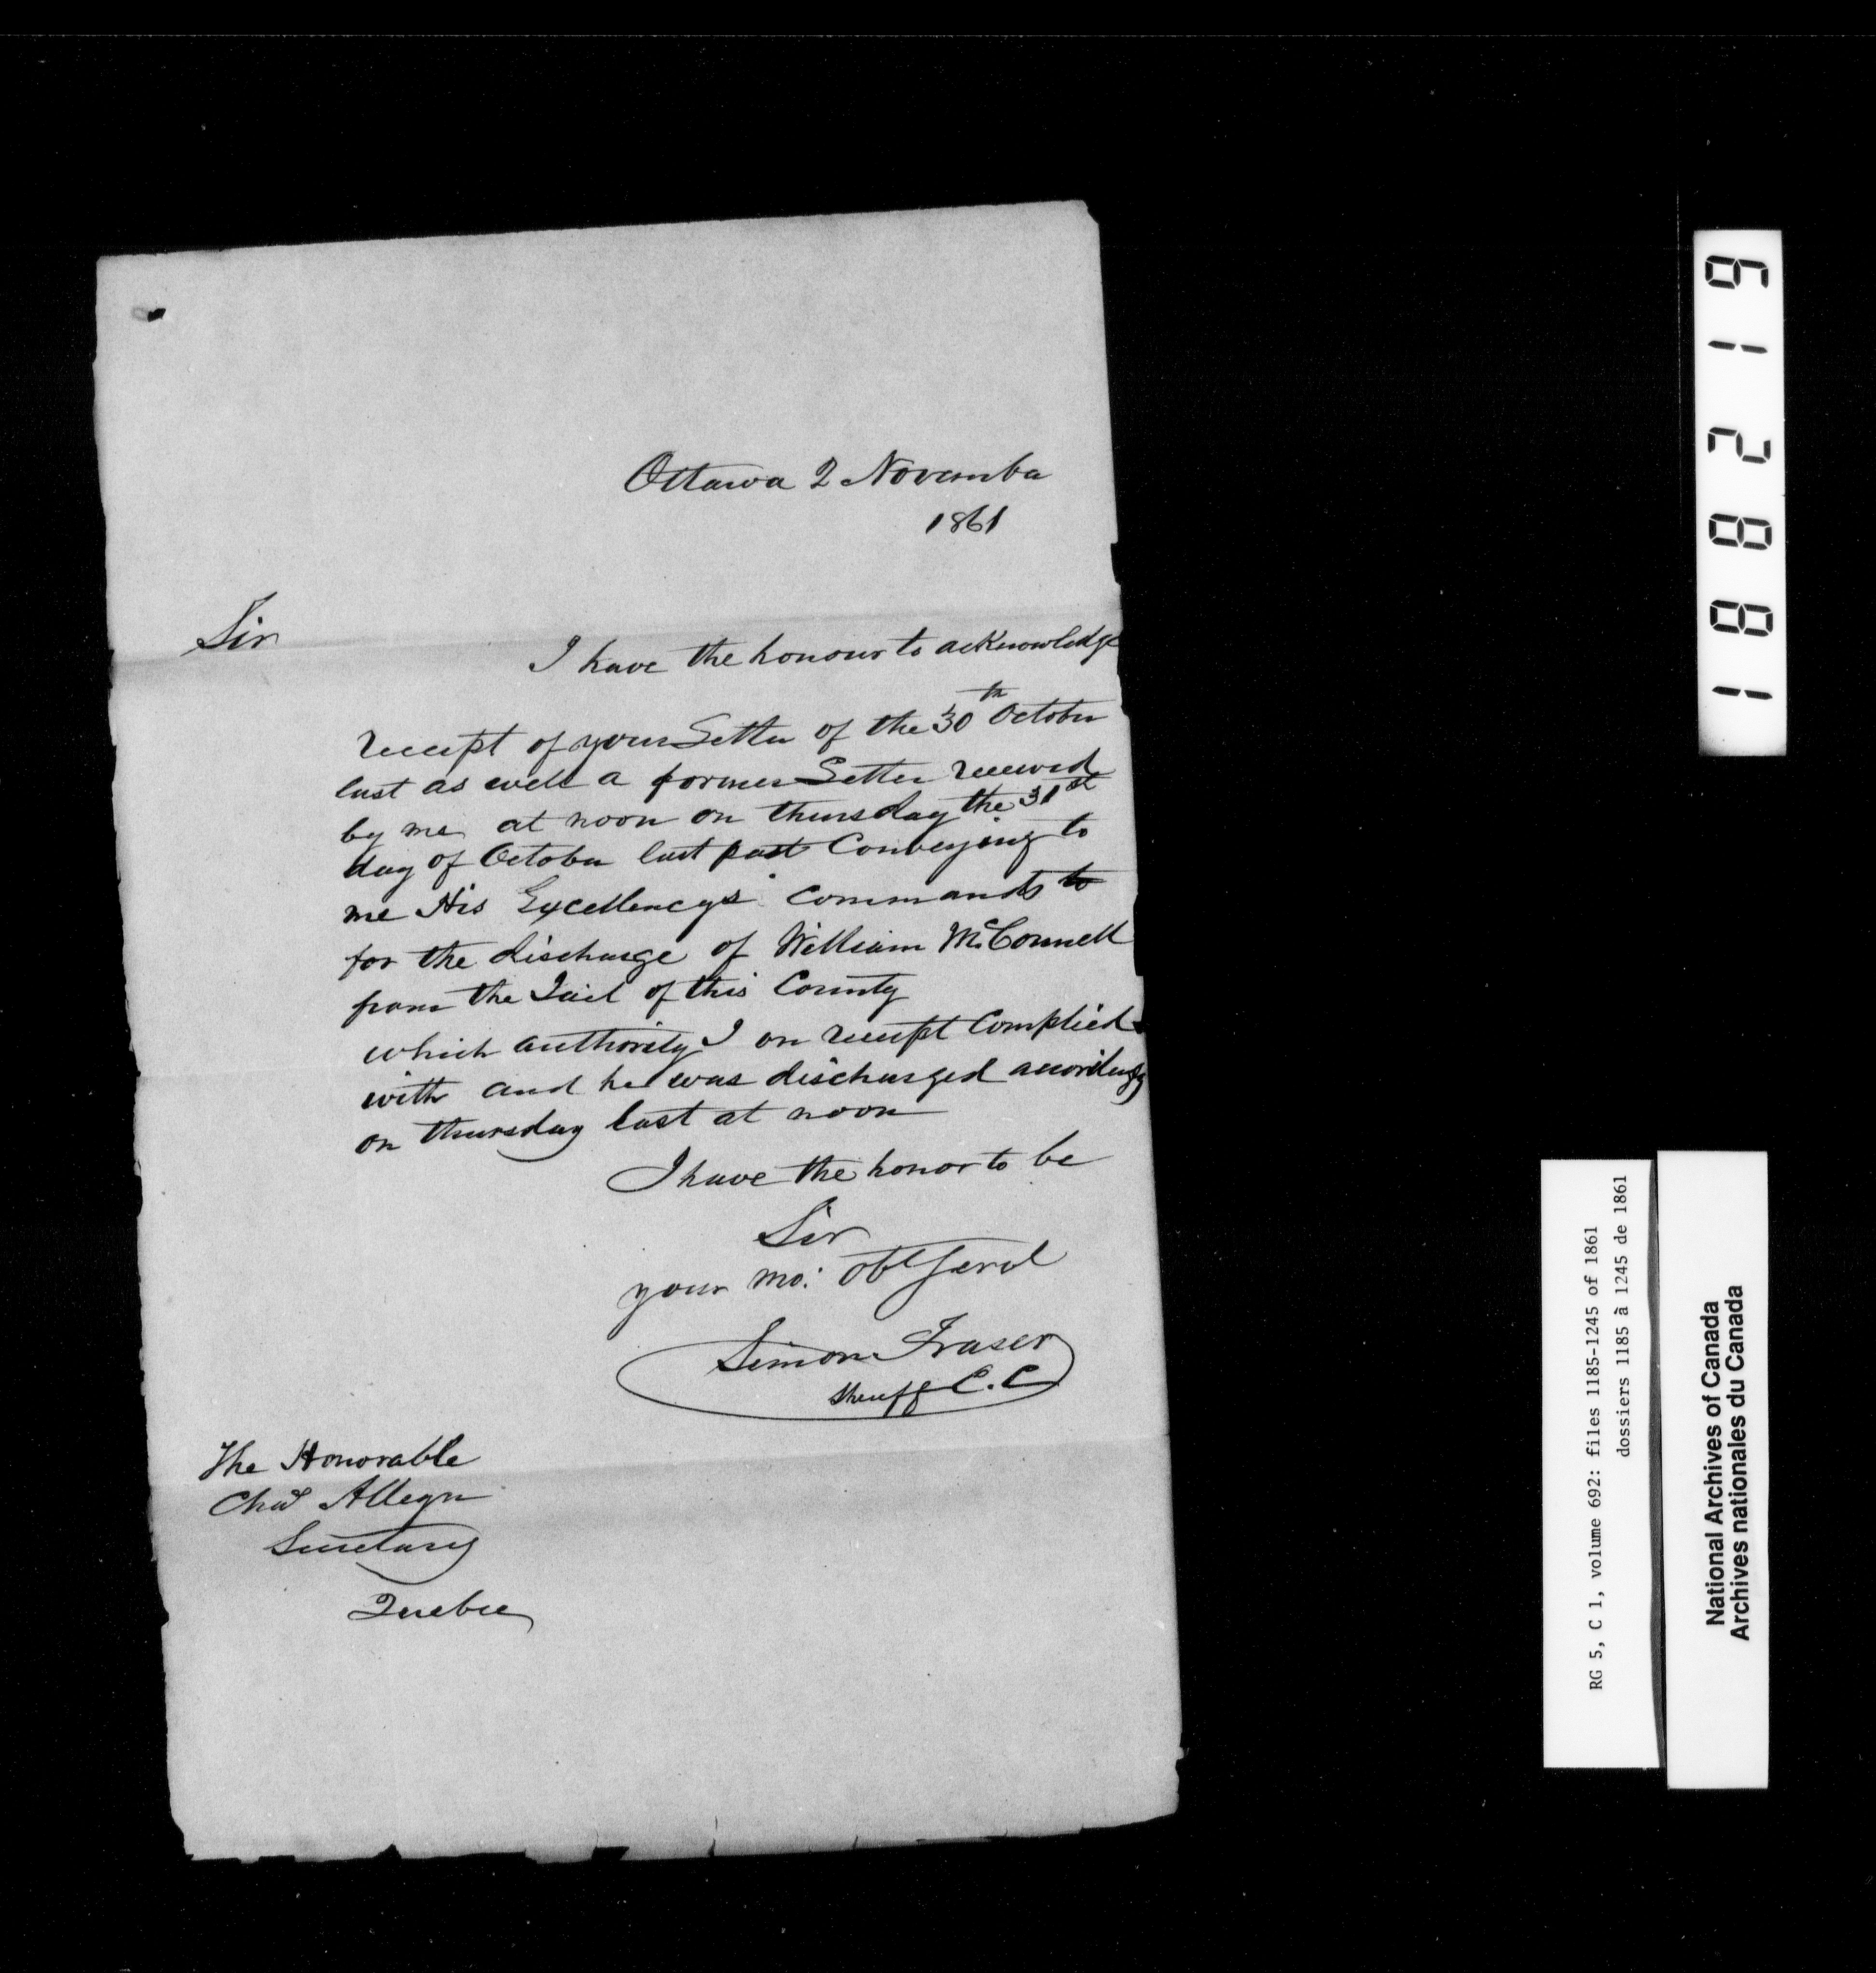 Ottawa 2 November
1861
Sir
I have the honour to acknowledge
receipt of your Letter of the 30th October
last as well a former Letter received
by me at noon on thursday the 31st
day of October last past Conveying to
me His Excellencys commands to
for the discharge of William McConnell
from the Jail of this County
which authority I on receipt Complied
with and he was discharged accordingly
on thursday last at noon
I have the honor to be
Sir
your mo: obt Servt
Simon Fraser
Sheriff C.C
The Honorable
Chas Alleyn
Secretary
Quebec
181286
RG 5, C 1, volume 692: files 1185-1245 of 1861
dossiers 1185 à 1245 de 1861
National Archives of Canada
Archives nationales du Canada